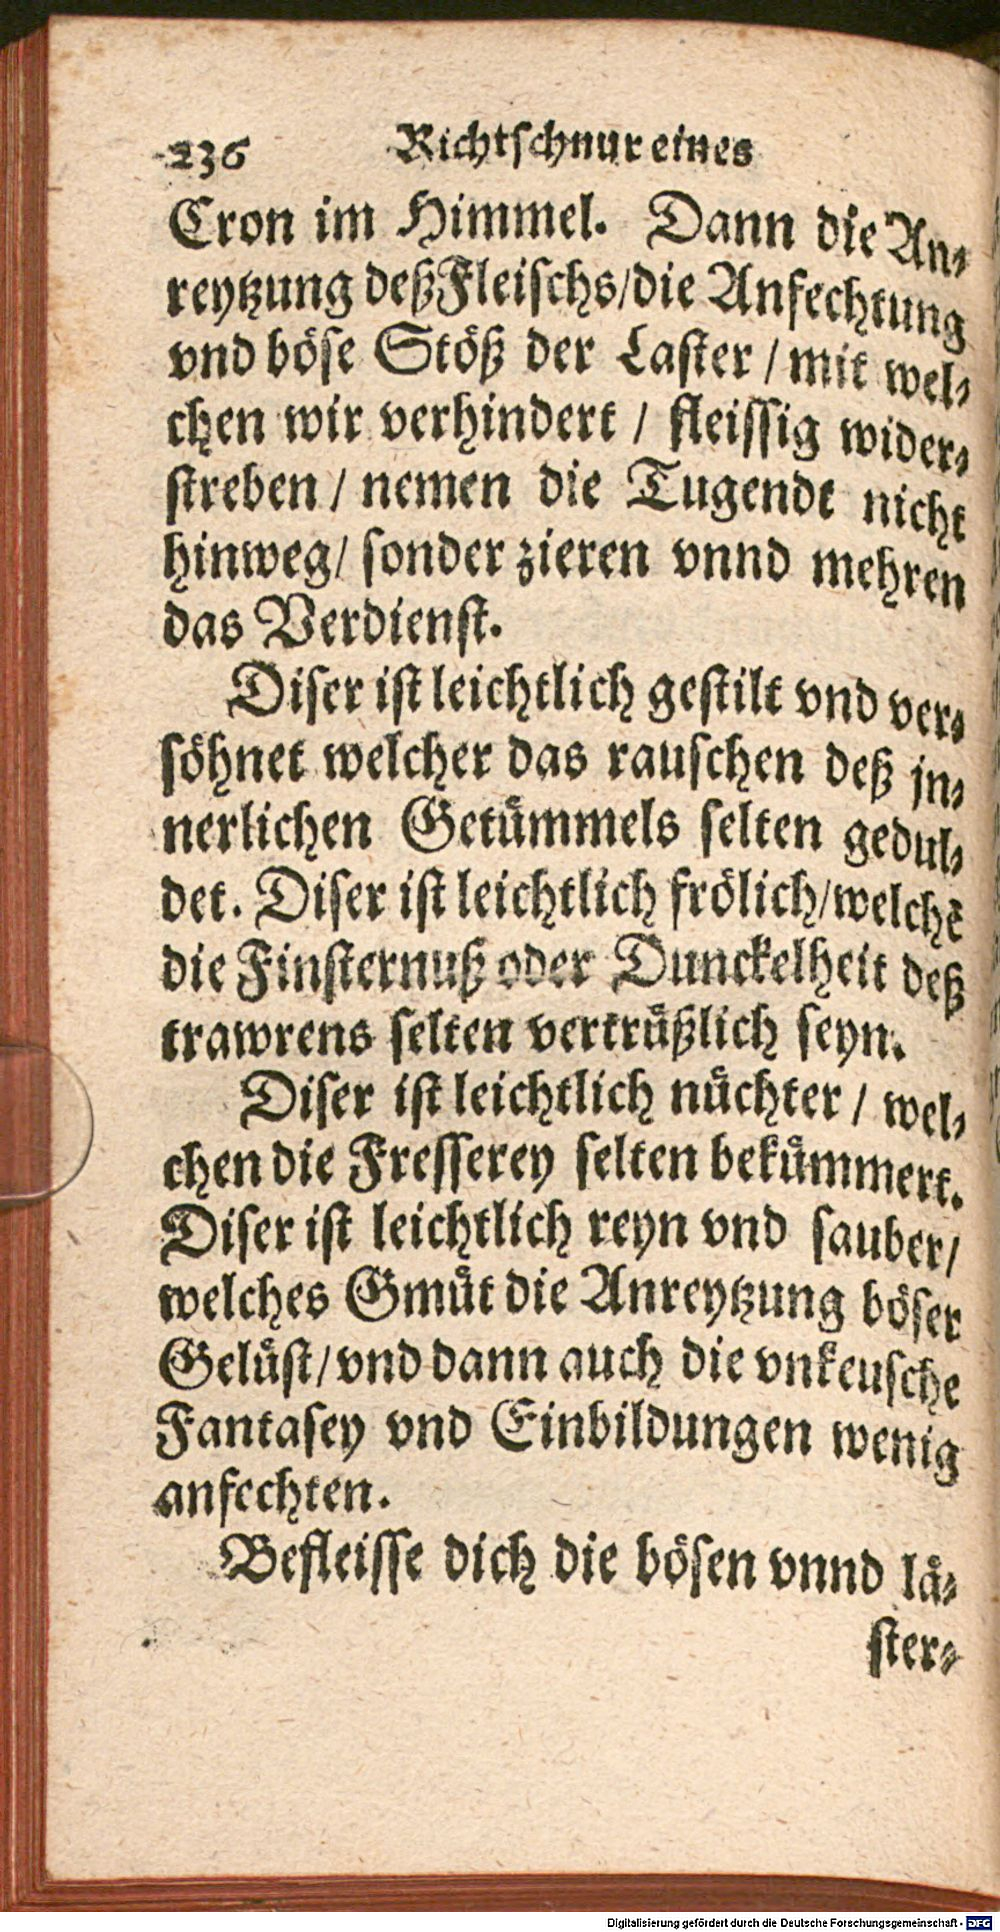 236 Richtschnur eines
Cron im Himmel. Dann die An-
reytzung deß Fleischs/die Anfechtung
vnd böse Stöß der Laster / mit wel-
chen wir verhindert / fleissig wider-
streben / nemen die Tugendt nicht
hinweg/ sonder zieren vnnd mehren
das Verdienst.
Diser ist leichtlich gestilt vnd ver-
söhnet welcher das rauschen deß jn-
nerlichen Getümmels selten gedul-
det. Diser ist leichtlich frölich/welchẽ
die Finsternuß oder Dunckelheit deß
trawrens selten vertrüßlich seyn.
Diser ist leichtlich nüchter / wel-
chen die Fresserey selten bekümmert.
Diser ist leichtlich reyn vnd sauber/
welches Gmüt die Anreytzung böser
Gelüst/vnd dann auch die vnkeusche
Fantasey vnd Einbildungen wenig
anfechten.
Befleisse dich die bösen vnnd lä-
ster-
Digitalisierung gefördert durch die Deutsche Forschungsgemeinschaft - DFG